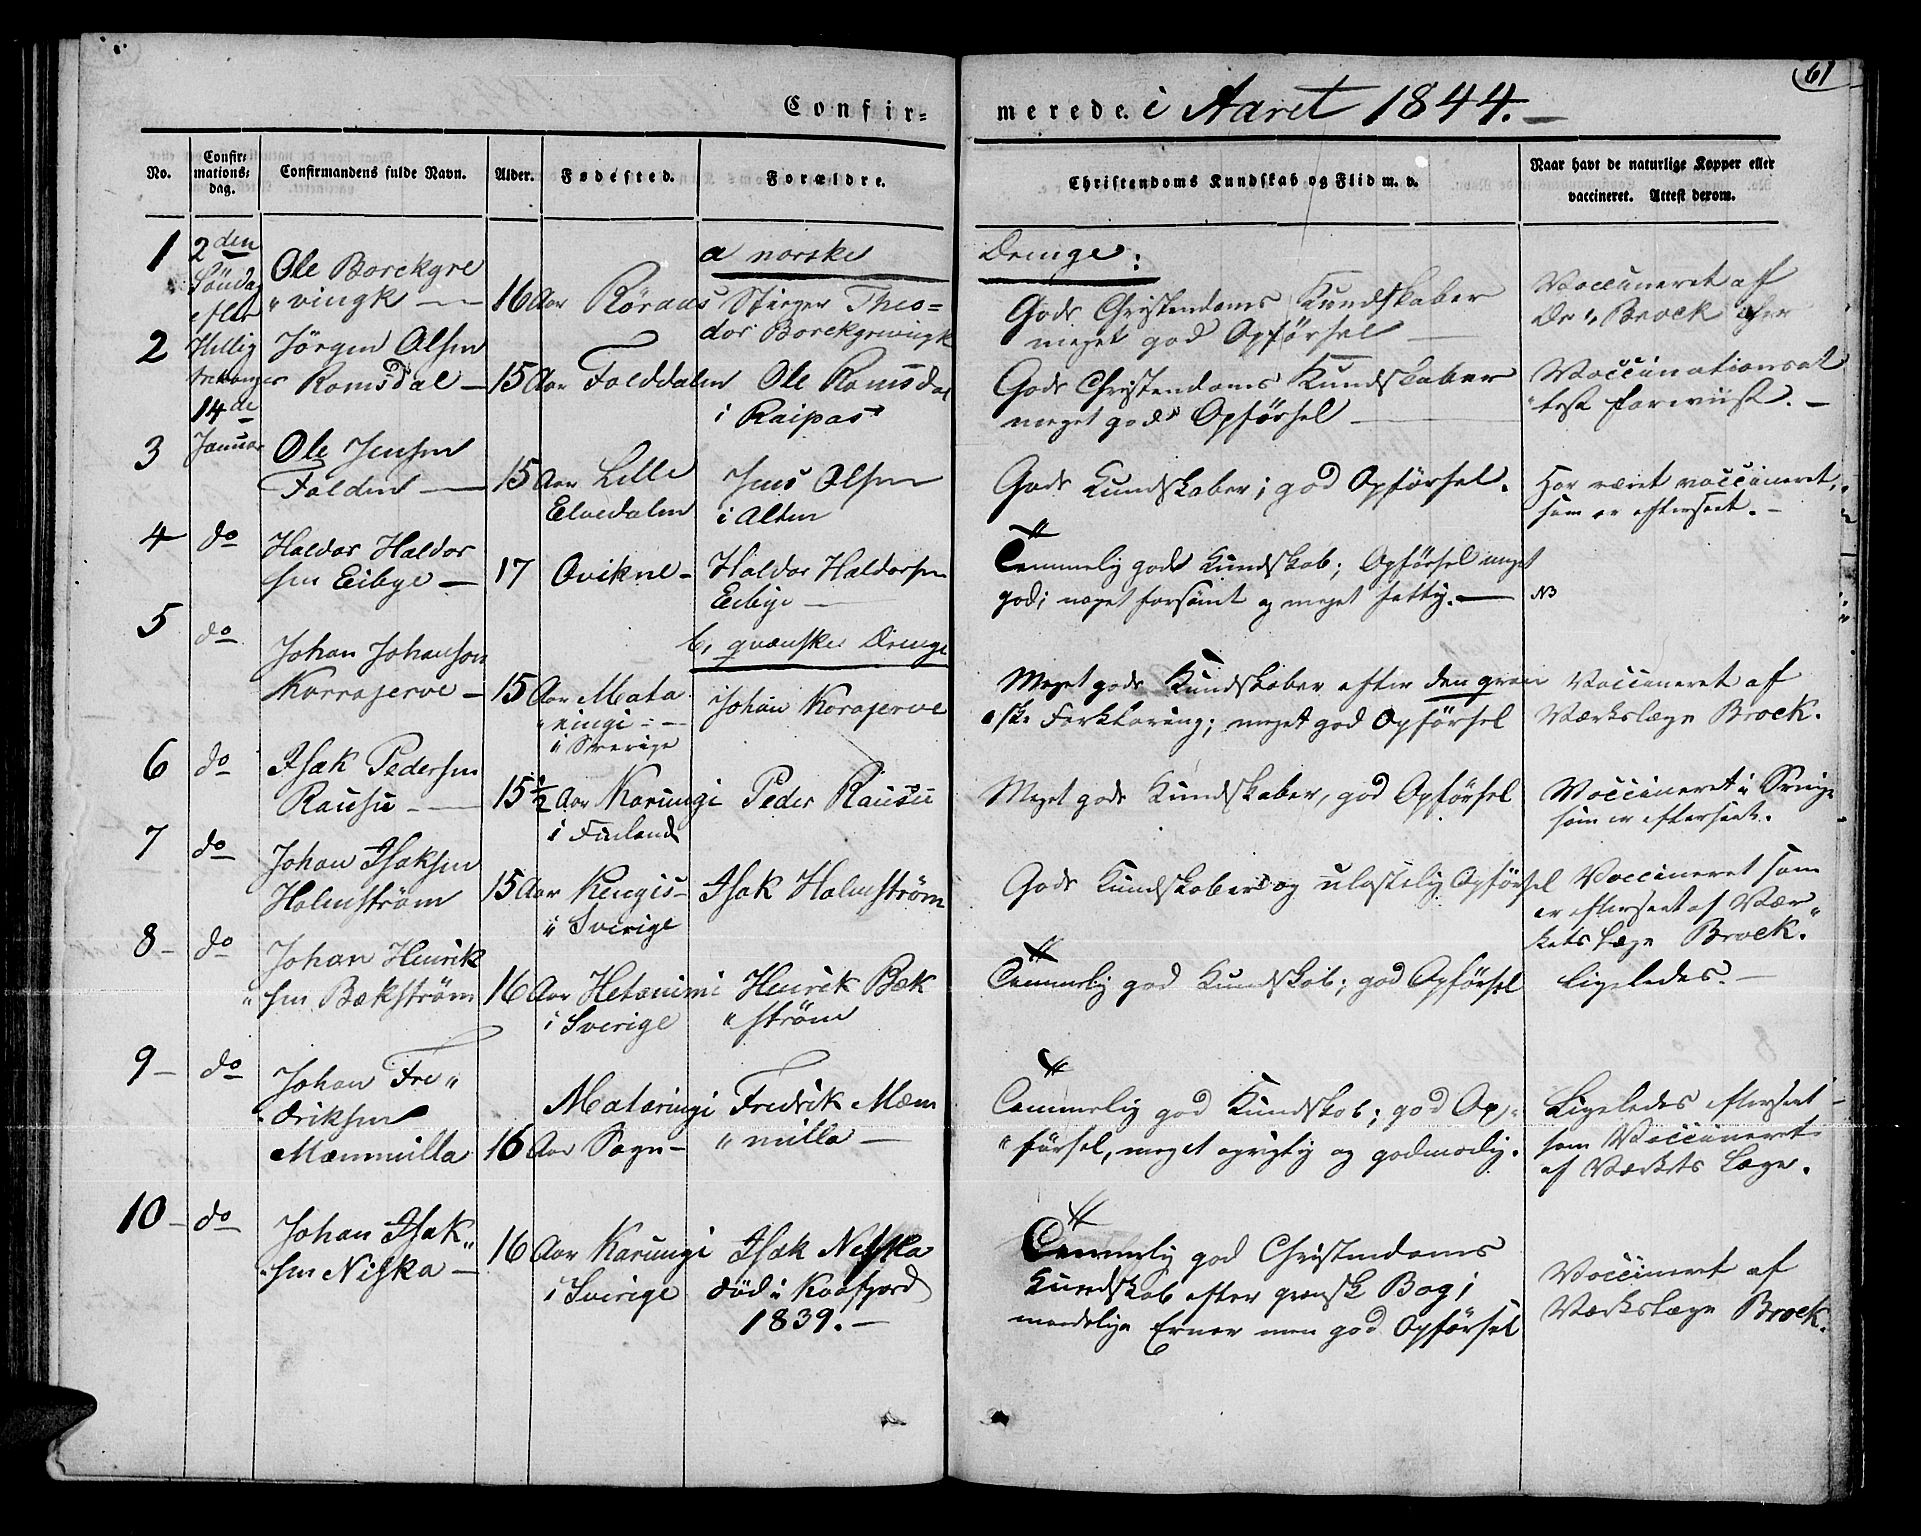 61
Confir=
merede. i Aaret 1844.
No.
Confir=
mations=
dag.
Confirmandens fulde Navn.
Alder.
Fødested.
Forældre.
Christendoms Kundskab og Flid m. v.
Naar havt de naturlige Kopper eller
vaccineret. Attest derom.
a norske
Drenge:
1
2den
Söndag
efter
Hellig
14de
Januar
Ole Borckgre
"vingk
16 Aar
Röraas
Stiger Theo=
dor Borckgrevingk
Gode Christendoms Kundskaber
meget god Opförsel
Vaccineret af
Dr. Brock
2
Jörgen Olsen
Romsdal
15 Aar
Folddalen
Ole Romsdal
i Raipas
Gode Christendoms Kundskaber
meget god Opförsel
Vaccinationsat
test forviist.
3
Ole Jensen
Folden
15 Aar
Lille
Elvedalen
Jens Olsen
i Alten
Gode Kundskaber; god Opförsel.
Har været vaccineret,
som er efterseet.
4
do
Haldor Haldor
sen Eibye
17
Qvikne
Haldor Haldorsen
Eibye
Temmelig gode Kundskab; Opförsel meget
god; noget forsömt og meget
NB
b, qvænske Drenge
5
do
Johan Johanson
Korrajerve
15 Aar
Mata
ringi
i Sverige
Johan Korajerve
Meget gode Kundskaber efter den qvæn
ske Forklaring; meget god Opförsel
Vaccineret af
Værkslæge Brock.
6
do
Isak Pedersen
Rausu
15 1/2 Aar
Karungi
i Finland
Peder Rausu
Meget gode Kundskaber, god Opförsel
Vaccineret i
som er efterseet.
7
do
Johan Isaksen
Holmström
15 Aar
Kengis
i Sverige
Isak Holmström
Gode Kundskaber og ulastelig Opförsel
Vaccineret som
er efterseet af Vær
kets Læge Brock.
8
do
Johan Henrik
sen Bækström
16 Aar
Hetanimi
i Sverige
Henrik Bæk
"ström
Temmelig god Kundskab; god Opförsel
Ligeledes.
9
do
Johan Fre"
driksen
Mæmmilla
16 Aar
Mataringi
Sogn
Fredrik Mæm
"milla
Temmelig god Kundskab; god Op=
"försel, meget oprigtig og godmodig.
Ligeledes efterseet
som Vaccineret
af Værkets Læge.
10
do
Johan Isak"
"sen Niska
16 Aar
Karungi
i Sverige
Isak Niska
död i Kaafjord
1839.
Temmelig god Christendoms
Kundskab efter qvænsk Bog;
maadelige Evner men god Opförsel
Vaccineret af
Værkslæge Brock.